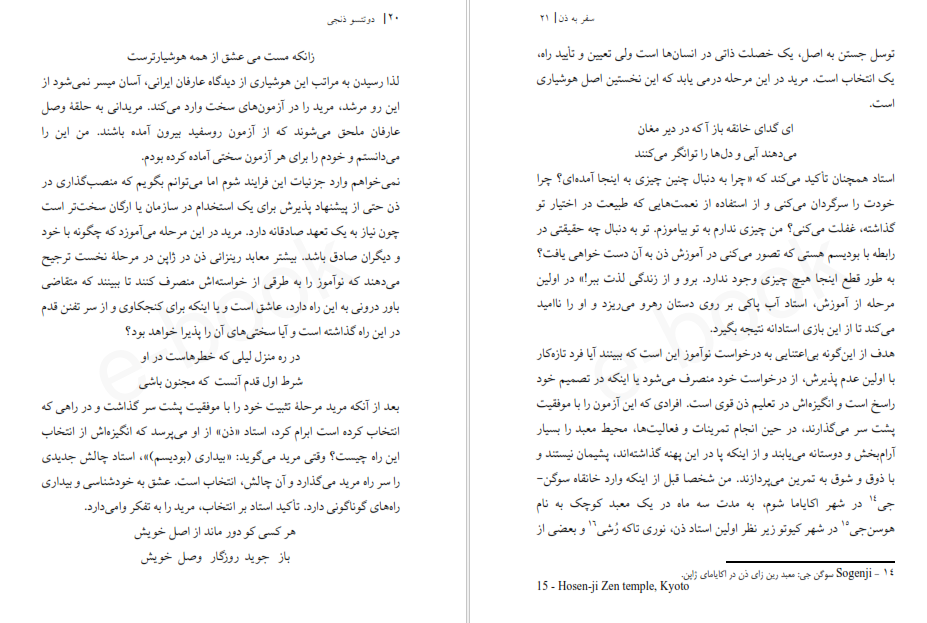 ۲۰ | دوتتسو ذنجی
زانکه مست می عشق از همه هوشیارترست
لذا رسیدن به مراتب این هوشیاری از دیدگاه عارفان ایرانی، آسان میسر نمی‌شود از
این رو مرشد، مرید را در آزمون‌های سخت وارد می‌کند. مریدانی به حلقهٔ وصل
عارفان ملحق می‌شوند که از آزمون روسفید بیرون آمده باشند. من این را
می‌دانستم و خودم را برای هر آزمون سختی آماده کرده بودم.
نمی‌خواهم وارد جزئیات این فرایند شوم اما می‌توانم بگویم که منصب‌گذاری در
ذن حتی از پیشنهاد پذیرش برای یک استخدام در سازمان یا ارگان سخت‌تر است
چون نیاز به یک تعهد صادقانه دارد. مرید در این مرحله می‌آموزد که چگونه با خود
و دیگران صادق باشد. بیشتر معابد رینزائی ذن در ژاپن در مرحلهٔ نخست ترجیح
می‌دهند که نوآموز را به طرقی از خواسته‌اش منصرف کنند تا ببینند که متقاضی
باور درونی به این راه دارد، عاشق است و یا اینکه برای کنجکاوی و از سر تفنن قدم
در این راه گذاشته است و آیا سختی‌های آن را پذیرا خواهد بود؟
در ره منزل لیلی که خطرهاست در او
شرط اول قدم آنست که مجنون باشی
بعد از آنکه مرید مرحلهٔ تثبیت خود را با موفقیت پشت سر گذاشت و در راهی که
انتخاب کرده است ابرام کرد، استاد «ذن» از او می‌پرسد که انگیزه‌اش از انتخاب
این راه چیست؟ وقتی مرید می‌گوید: «بیداری (بودیسم)»، استاد چالش جدیدی
را سر راه مرید می‌گذارد و آن چالش، انتخاب است. عشق به خودشناسی و بیداری
راه‌های گوناگونی دارد. تأکید استاد بر انتخاب، مرید را به تفکر وامی‌دارد.
هر کسی کو دور ماند از اصل خویش
باز جوید روزگار وصل خویش
سفر به ذن | ۲۱
توسل جستن به اصل، یک خصلت ذاتی در انسان‌ها است ولی تعیین و تأیید راه،
یک انتخاب است. مرید در این مرحله درمی یابد که این نخستین اصل هوشیاری
است.
ای گدای خانقه باز آ که در دیر مغان
می‌دهند آبی و دل‌ها را توانگر می‌کنند
استاد همچنان تأکید می‌کند که «چرا به دنبال چنین چیزی به اینجا آمده‌ای؟ چرا
خودت را سرگردان می‌کنی و از استفاده از نعمت‌هایی که طبیعت در اختیار تو
گذاشته، غفلت می‌کنی؟ من چیزی ندارم به تو بیاموزم. تو به دنبال چه حقیقتی در
رابطه با بودیسم هستی که تصور می‌کنی در آموزش ذن به آن دست خواهی یافت؟
به طور قطع اینجا هیچ چیزی وجود ندارد. برو و از زندگی لذت ببر!» در اولین
مرحله از آموزش، استاد آب پاکی بر روی دستان رهرو می‌ریزد و او را ناامید
می‌کند تا از این بازی استادانه نتیجه بگیرد.
هدف از این‌گونه بی‌اعتنایی به درخواست نوآموز این است که ببینند آیا فرد تازه‌کار
با اولین عدم پذیرش، از درخواست خود منصرف می‌شود یا اینکه در تصمیم خود
راسخ است و انگیزه‌اش در تعلیم ذن قوی است. افرادی که این آزمون را با موفقیت
پشت سر می‌گذارند، در حین انجام تمرینات و فعالیت‌ها، محیط معبد را بسیار
آرام‌بخش و دوستانه می‌یابند و از اینکه پا در این پهنه گذاشته‌اند، پشیمان نیستند و
با ذوق و شوق به تمرین می‌پردازند. من شخصا قبل از اینکه وارد خانقاه سوگن-
جی۱۴ در شهر اکایاما شوم، به مدت سه ماه در یک معبد کوچک به نام
هوسن‌جی۱۵ در شهر کیوتو زیر نظر اولین استاد ذن، نوری تاکه رُشی۱۶ و بعضی از
۱۴ - Sogenji سوگن جی: معبد رین زای ذن در اکایامای ژاپن.
15 - Hosen-ji Zen temple, Kyoto
e book
e book